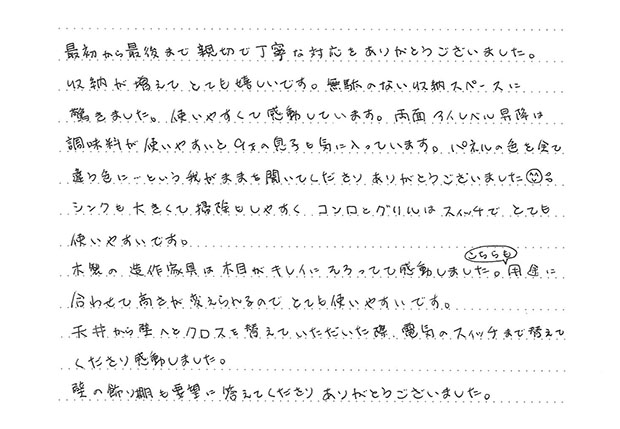 最初から最後まで親切で丁寧な対応をありがとうございました。
収納が増えてとても嬉しいです。無駄のない収納スペースに
驚きました。使いやすくて感動しています。両面アイレベル昇降は
調味料が使いやすいと9才の息子も気に入っています。パネルの色を全て
違う色に…という我がままを聞いてくださりありがとうございました
シンクも大きくて掃除もしやすく コンロとグリルはスイッチで とても
使いやすいです。
こちらも
木製の造作家具は木目がキレイにそろってて感動しました。用途に
合わせて高さが変えられるのでとても使いやすいです。
天井から壁へとクロスを替えていただいた際、電気のスイッチまで替えて
くださり感動しました。
壁の飾り棚も要望に答えてくださりありがとうございました。